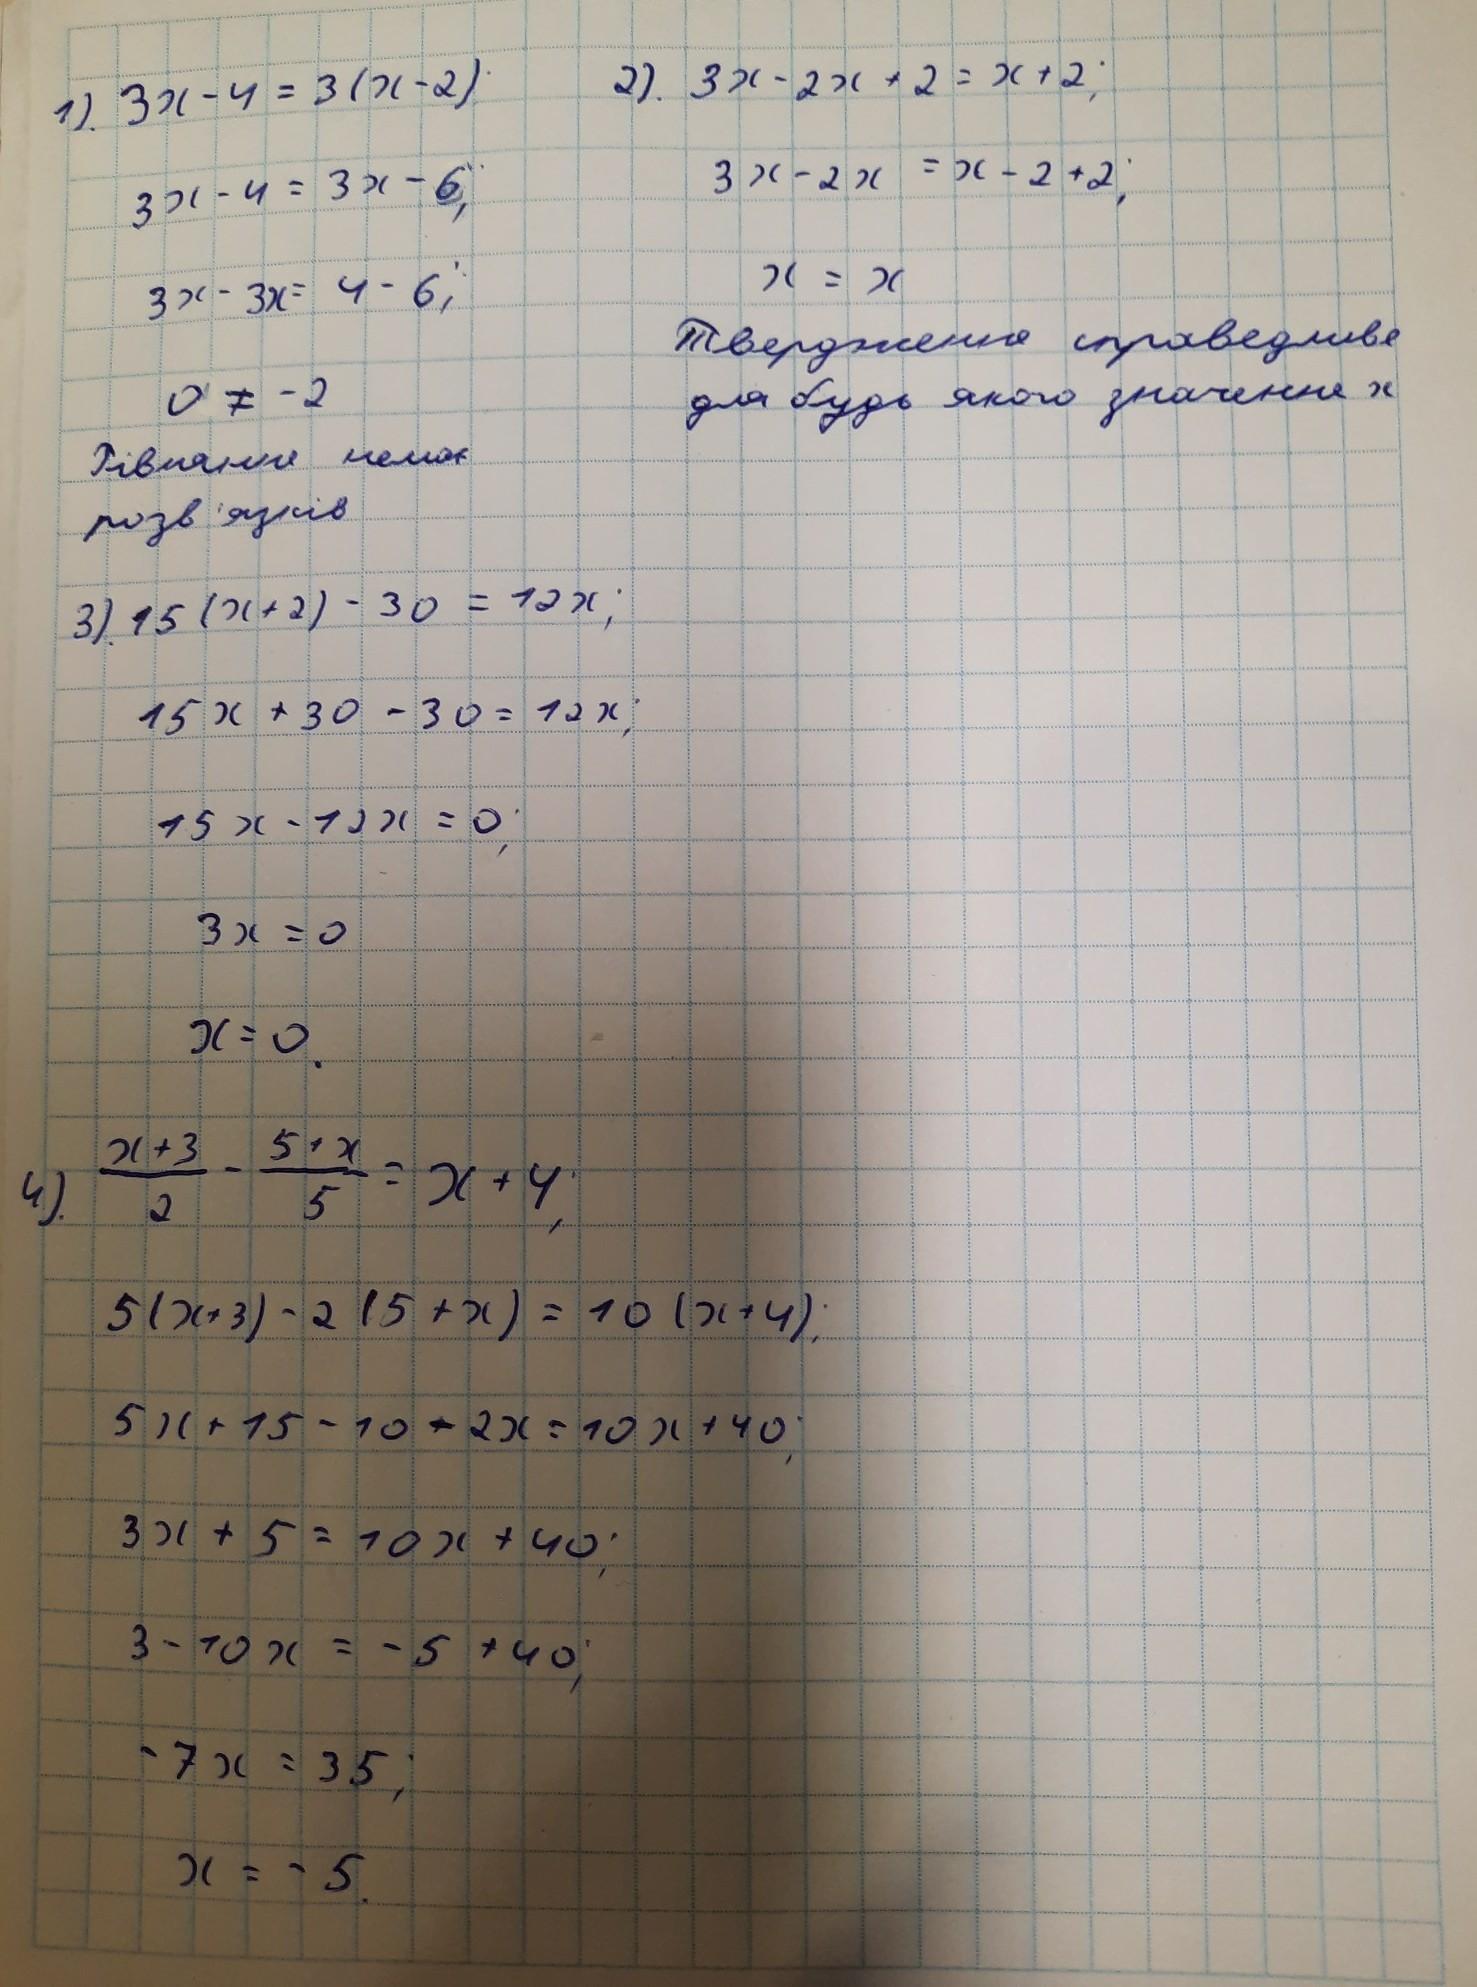 1). 3x - 4 = 3(x - 2);
3x - 4 = 3x - 6;
3x - 3x = 4 - 6;
0 ≠ -2
Рівняння немає
розв'язків
2). 3x - 2x + 2 = x + 2;
3x - 2x = x - 2 + 2;
x = x
Твердження справедливе
для будь якого значення x
3). 15(x + 2) - 30 = 12x;
15x + 30 - 30 = 12x;
15x - 12x = 0;
3x = 0
x = 0.
4). (x + 3)/2 - (5 + x)/5 = x + 4;
5(x + 3) - 2(5 + x) = 10(x + 4);
5x + 15 - 10 - 2x = 10x + 40;
3x + 5 = 10x + 40;
3 - 10x = -5 + 40;
-7x = 35;
x = -5.